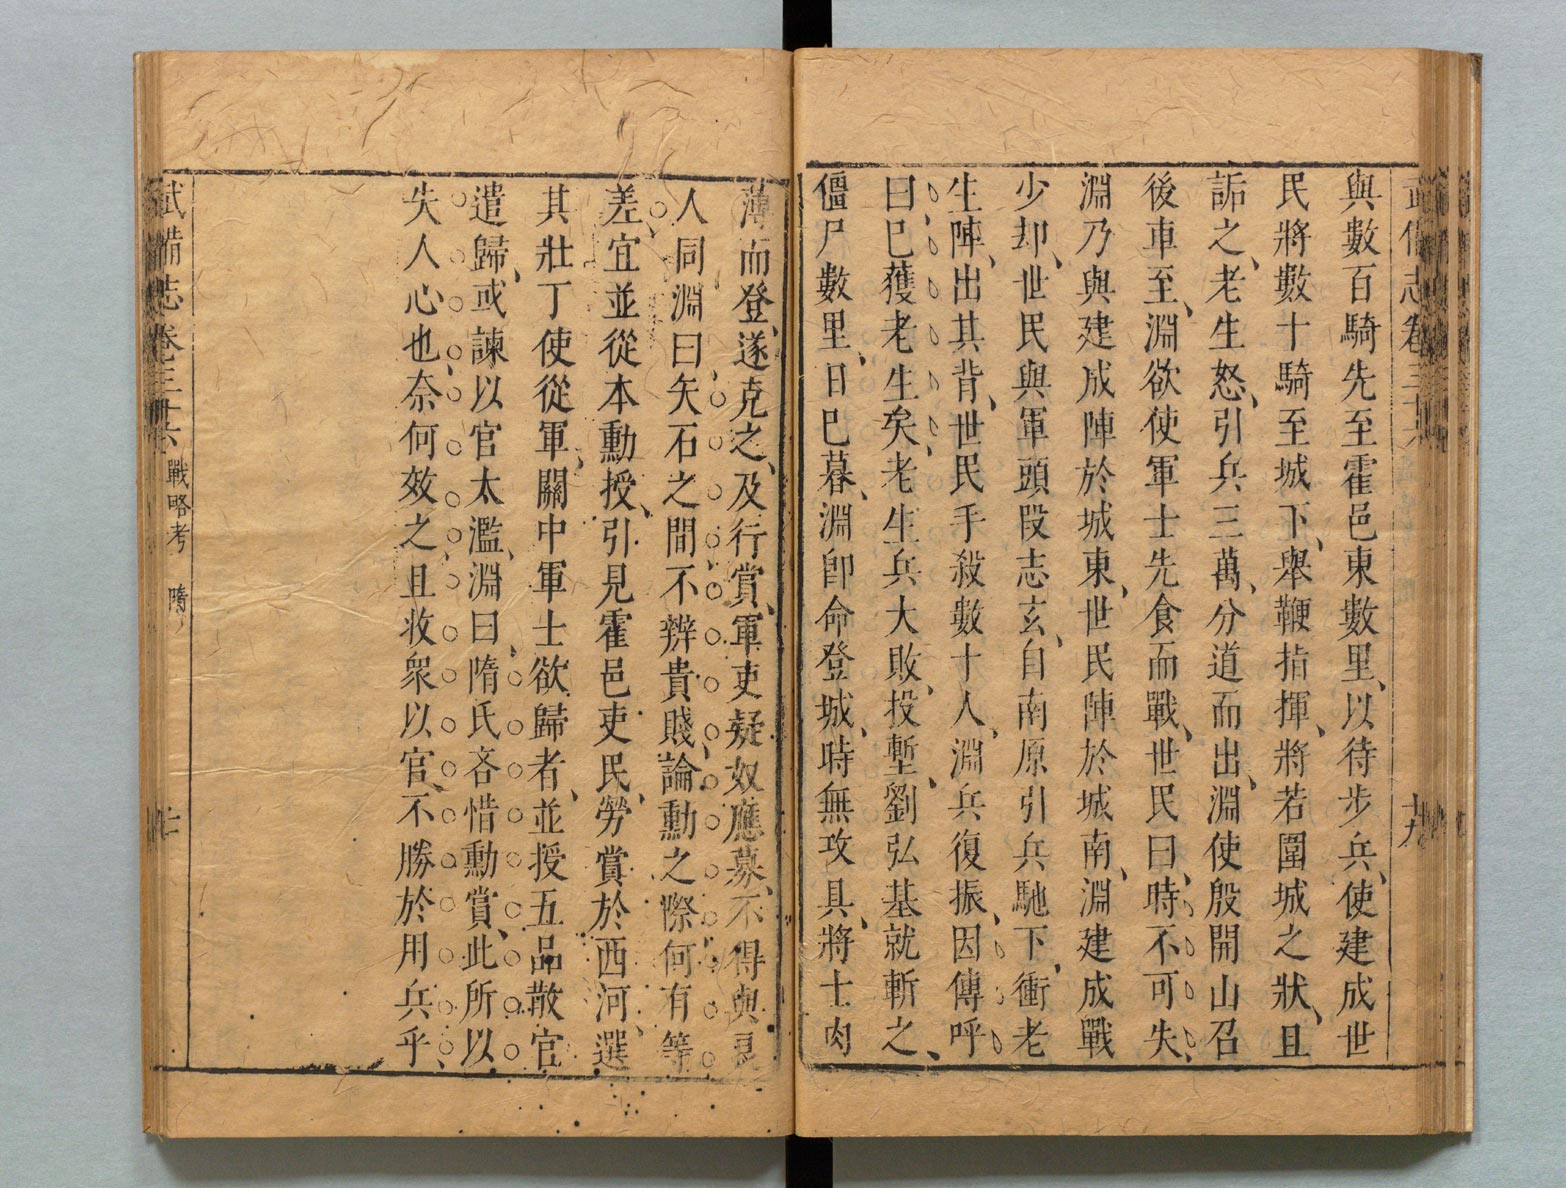 武備志卷三十六
十九
與數百騎先至霍邑東數里、以待步兵、使建成世
民將數十騎至城下、舉鞭指揮、將若圍城之狀、且
詬之、老生怒、引兵三萬、分道而出、淵使殷開山召
後車至、淵欲使軍士先食而戰、世民曰、時不可失、
淵乃與建成陣於城東、世民陣於城南、淵建成戰
少却、世民與軍頭段志玄、自南原引兵馳下、衝老
生陣、出其背、世民手殺數十人、淵兵復振、因傳呼
曰、巳蒦老生矣、老生兵大敗、投塹、劉弘基就斬之、
僵尸數里、日巳暮、淵卽命登城、時無攻具、將士肉
薄而登、遂克之、及行賞、軍吏疑奴應募、不得與良
人同、淵曰、矢石之間、不辨貴賤、論勳之際、何有等
差、宜並從本勳授、引見霍邑吏民、勞賞於西河、選
其壯丁使從軍、關中軍士欲歸者、並授五品散官
遣歸、或諫以官太濫、淵曰、隋氏吝惜勳賞、此所以
失人心也、奈何效之、且收衆以官、不勝於用兵乎、
武備志卷三十六 戰略考 隋